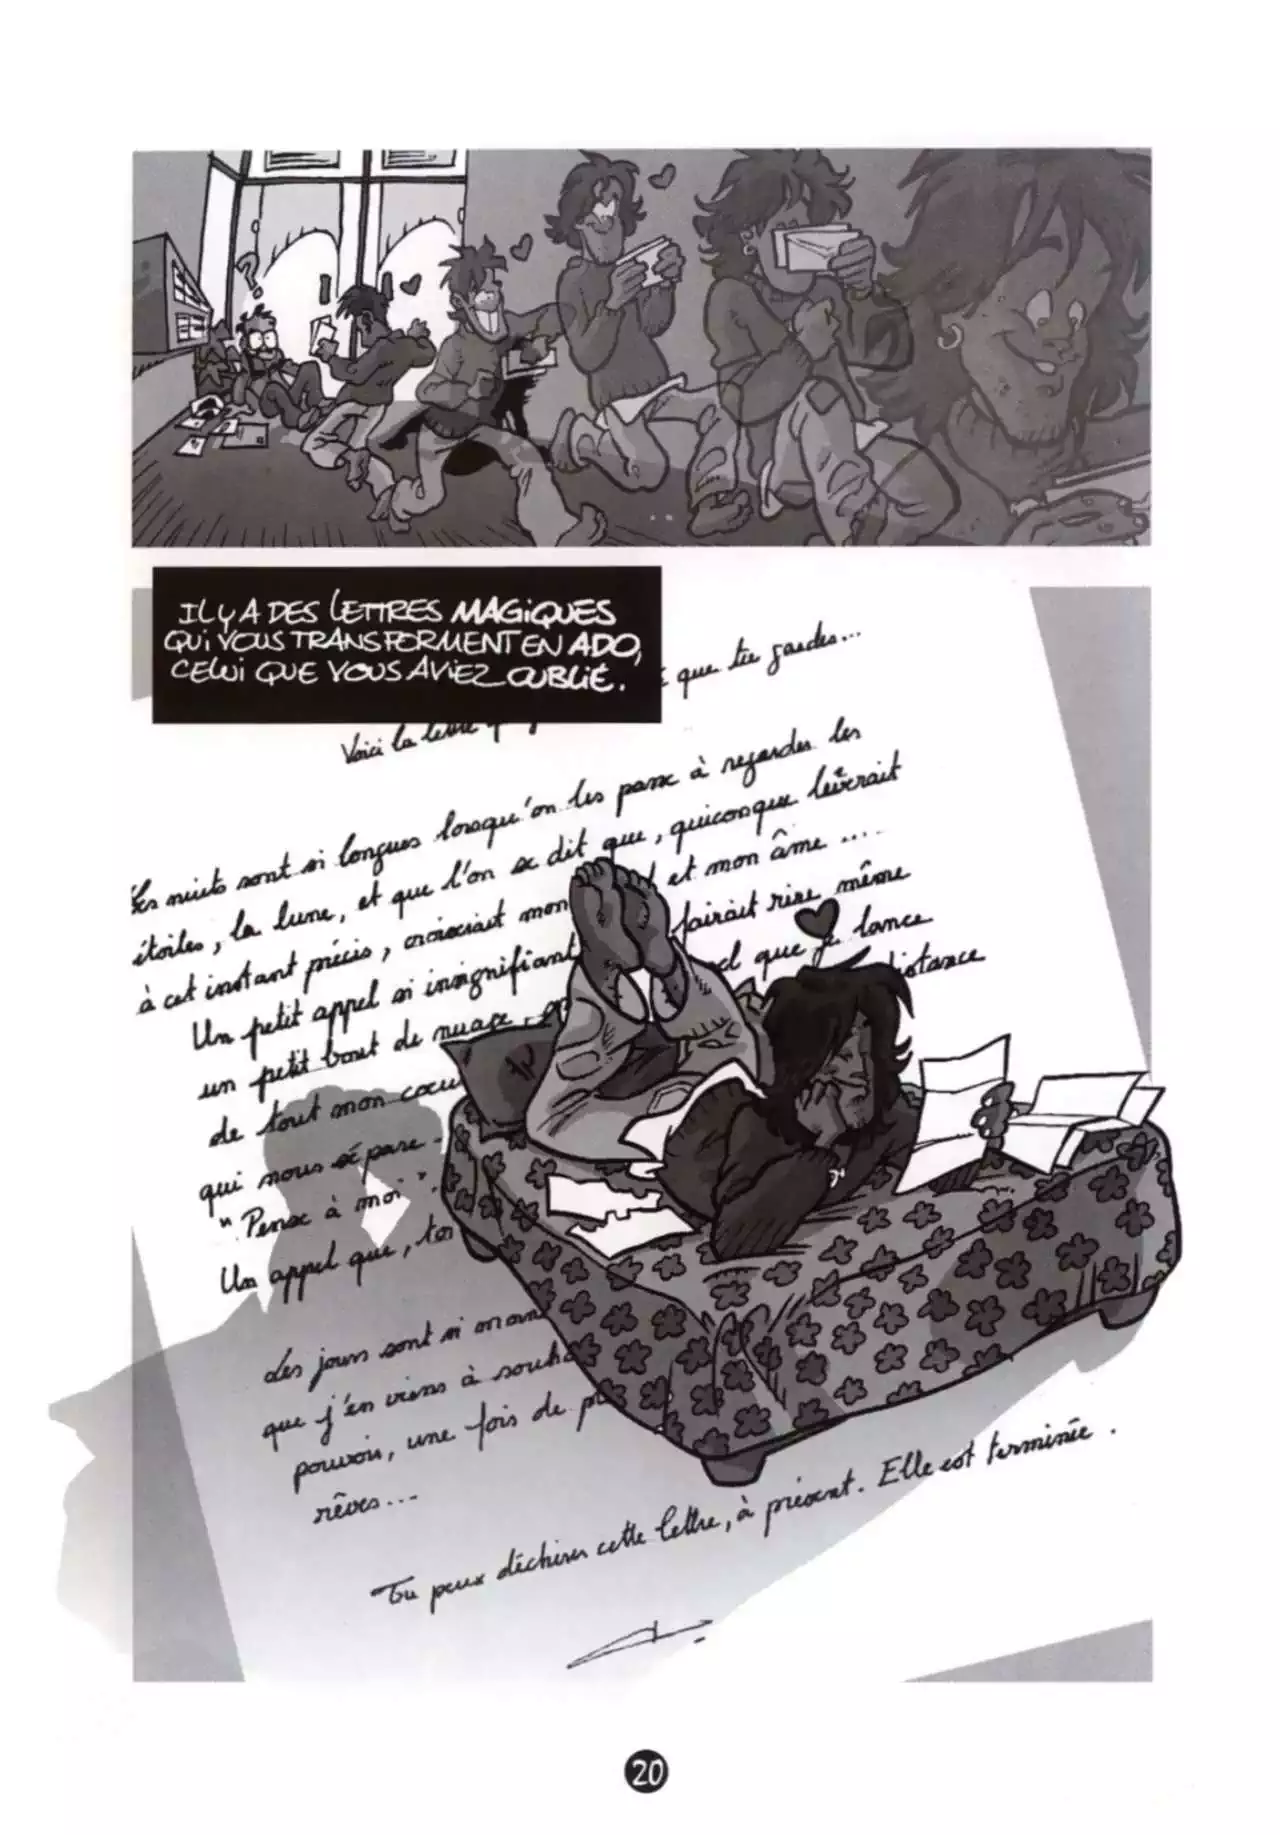 ?
IL Y A DES LETTRES MAGIQUES
QUI VOUS TRANSFORMENT EN ADO,
CELUI QUE VOUS AVIEZ OUBLIÉ.
que tu gardes...
Voici la lettre
Les nuits sont si longues lorsqu'on les passe à regarder les
étoiles, la lune, et que l'on se dit que, quiconque lèverait
à cet instant précis, croiserait mon et mon âme ....
Un petit appel si insignifiant fairait rire même
un petit bout de nuage, que je lance
de tout mon coeur distance
qui nous sépare.
"Pense à moi".
Un appel que,
Les jours sont si
que j'en viens à
pouvoir, une fois de
rêves...
Tu peux déchirer cette lettre, à présent. Elle est terminée.
20